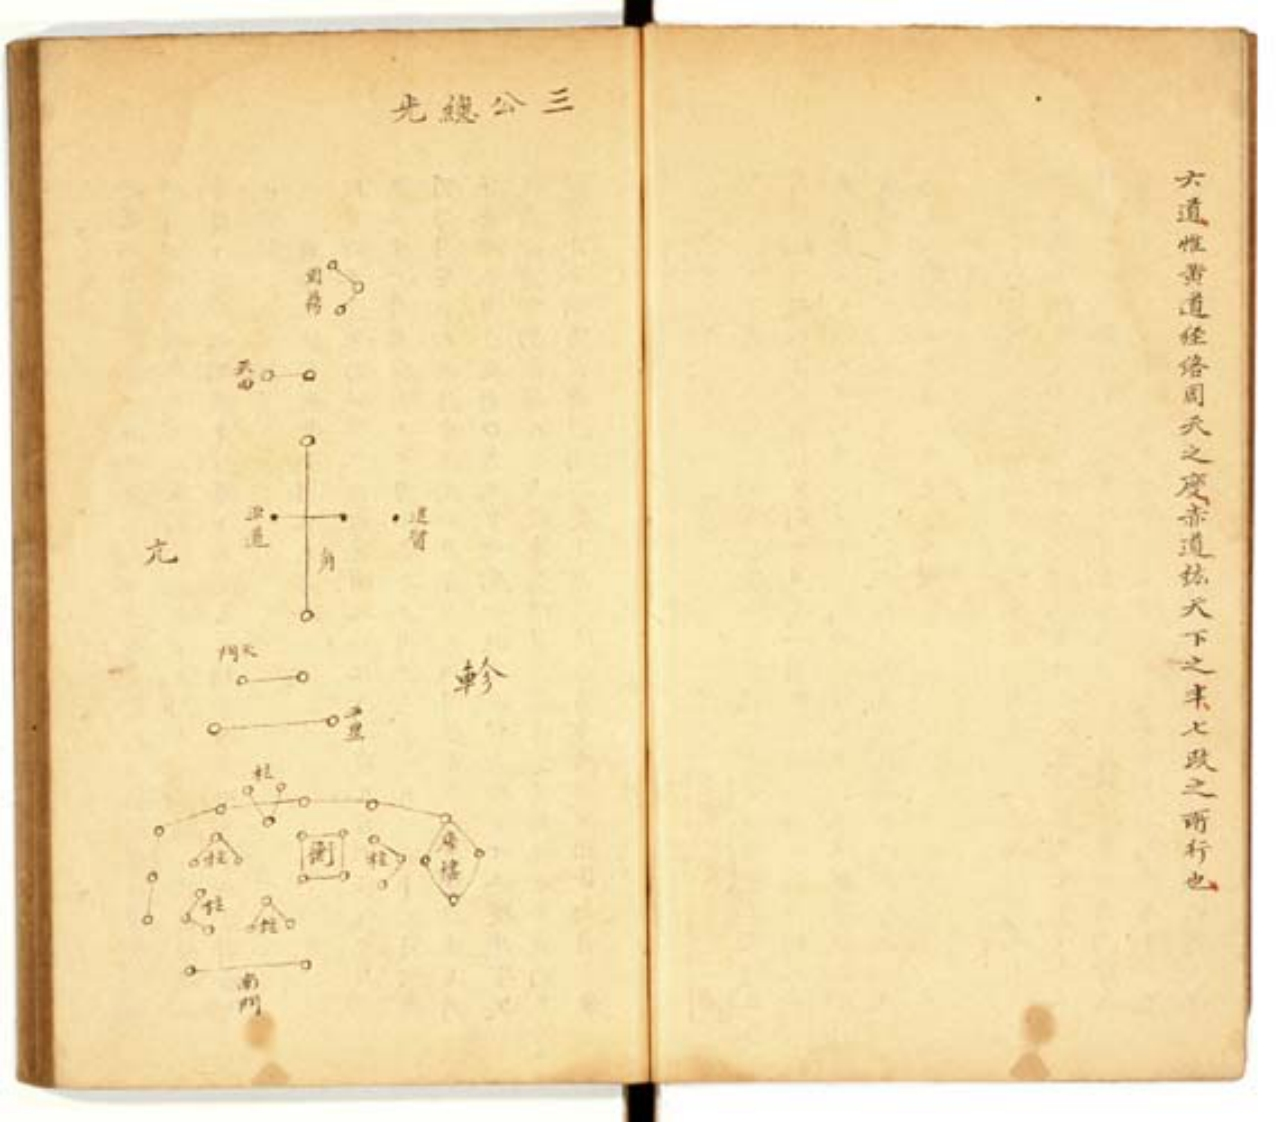 六道惟黄道経絡周天之度赤道紘天下之半七政之所行也
三公總光
周鼎
天田
平道
進賢
角
亢
天門
軫
平星
柱
庫樓
衡
柱
柱
柱
柱
南門